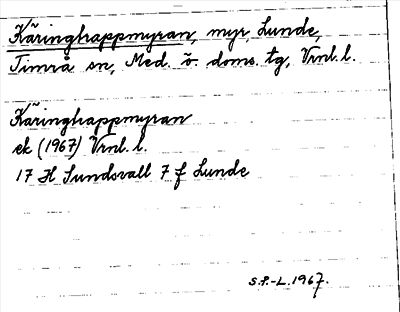 Käringhappmyran, myr, Lunde,
Timrå sn, Med. ö. doms. tg, Vrnl. l.
Käringhappmyran
ek (1967) Vrnl. l.
17 H Sundsvall 7 f Lunde
S.P.-L. 1967.